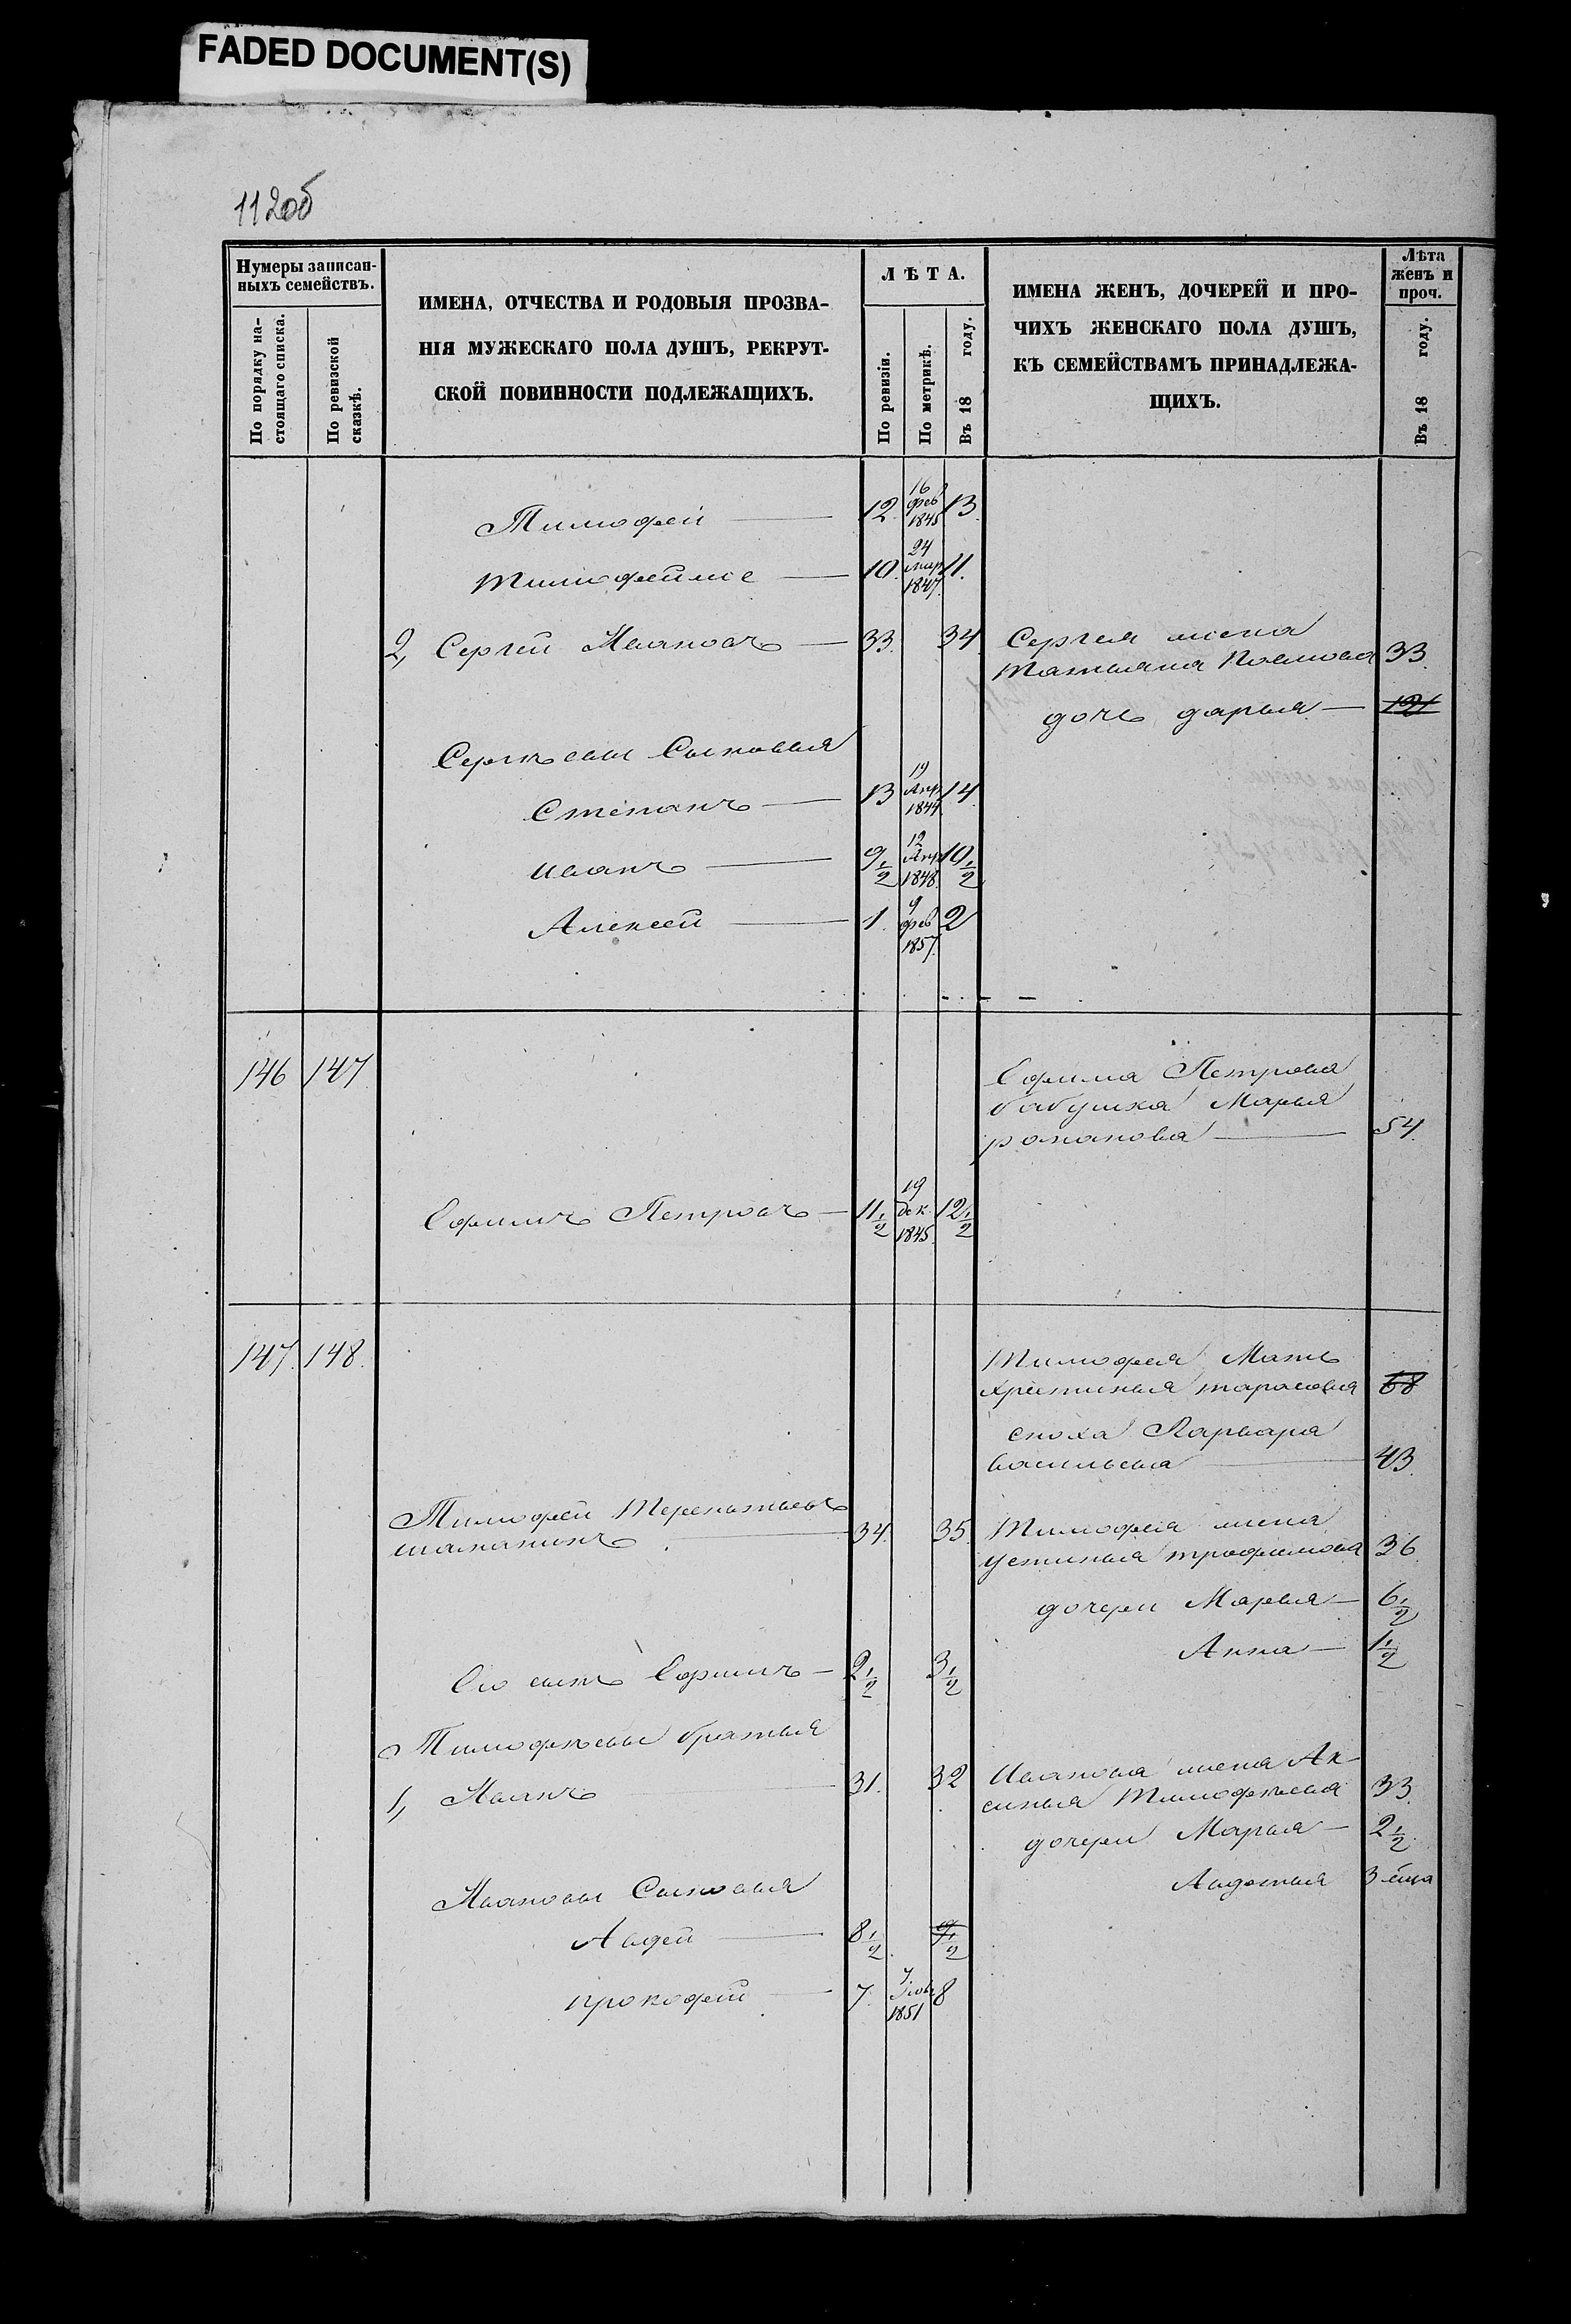 FADED DOCUMENT(S)
112об
Нумеры записан-
ныхъ семействъ.
По порядку на-
стоящаго списка.
По ревизской
сказкѣ.
ИМЕНА, ОТЧЕСТВА И РОДОВЫЯ ПРОЗВА-
НІЯ МУЖЕСКАГО ПОЛА ДУШЪ, РЕКРУТ-
СКОЙ ПОВИННОСТИ ПОДЛЕЖАЩИХЪ.
ЛѢТА.
По ревизіи.
По метрикѣ.
Въ 18 году.
ИМЕНА ЖЕНЪ, ДОЧЕРЕЙ И ПРО-
ЧИХЪ ЖЕНСКАГО ПОЛА ДУШЪ,
КЪ СЕМЕЙСТВАМЪ ПРИНАДЛЕЖА-
ЩИХЪ.
Лѣта
женъ и
проч.
Въ 18 году.
Тимофей — 12. 16 фев 1845 13.
Тимофей — 10. 24 мар 1847 11.
2, Сергей Ивановъ — 33. 34
Сергея жена
Татьяна 33.
дочь дарья — 12
Сергѣевы Сыновья
Степанъ — 13 19 Апр 1844 14
иванъ — 9 1/2 12 Апр 1848 10 1/2
Алексей — 1. 9 фев 1857. 2
146 147
Ефима Петрова
бабушка Марья
романова — 54.
Ефимъ Петровъ — 11 1/2 19 дек 1845. 12 1/2
147. 148.
Тимофея Мать
христинья тарасовья 68
сноха Варвара
васильева — 43.
Тимофей Терентьевъ
шаманинъ — 34. 35.
Тимофея жена
устинья трофимова 36
дочери Марья — 6 1/2
Анна — 1 1/2
Его сынъ Ефимъ — 2 1/2 3 1/2
Тимофѣевы братья
1, Иванъ 31. 32
Иванова жена Ак-
синья Тимофѣева 33.
дочери Марья — 2 1/2.
Авдотья 3 мѣца
Ивановы Сыновья
Авдей — 8 1/2. 9 1/2
прокофей — 7. 7 1851 8